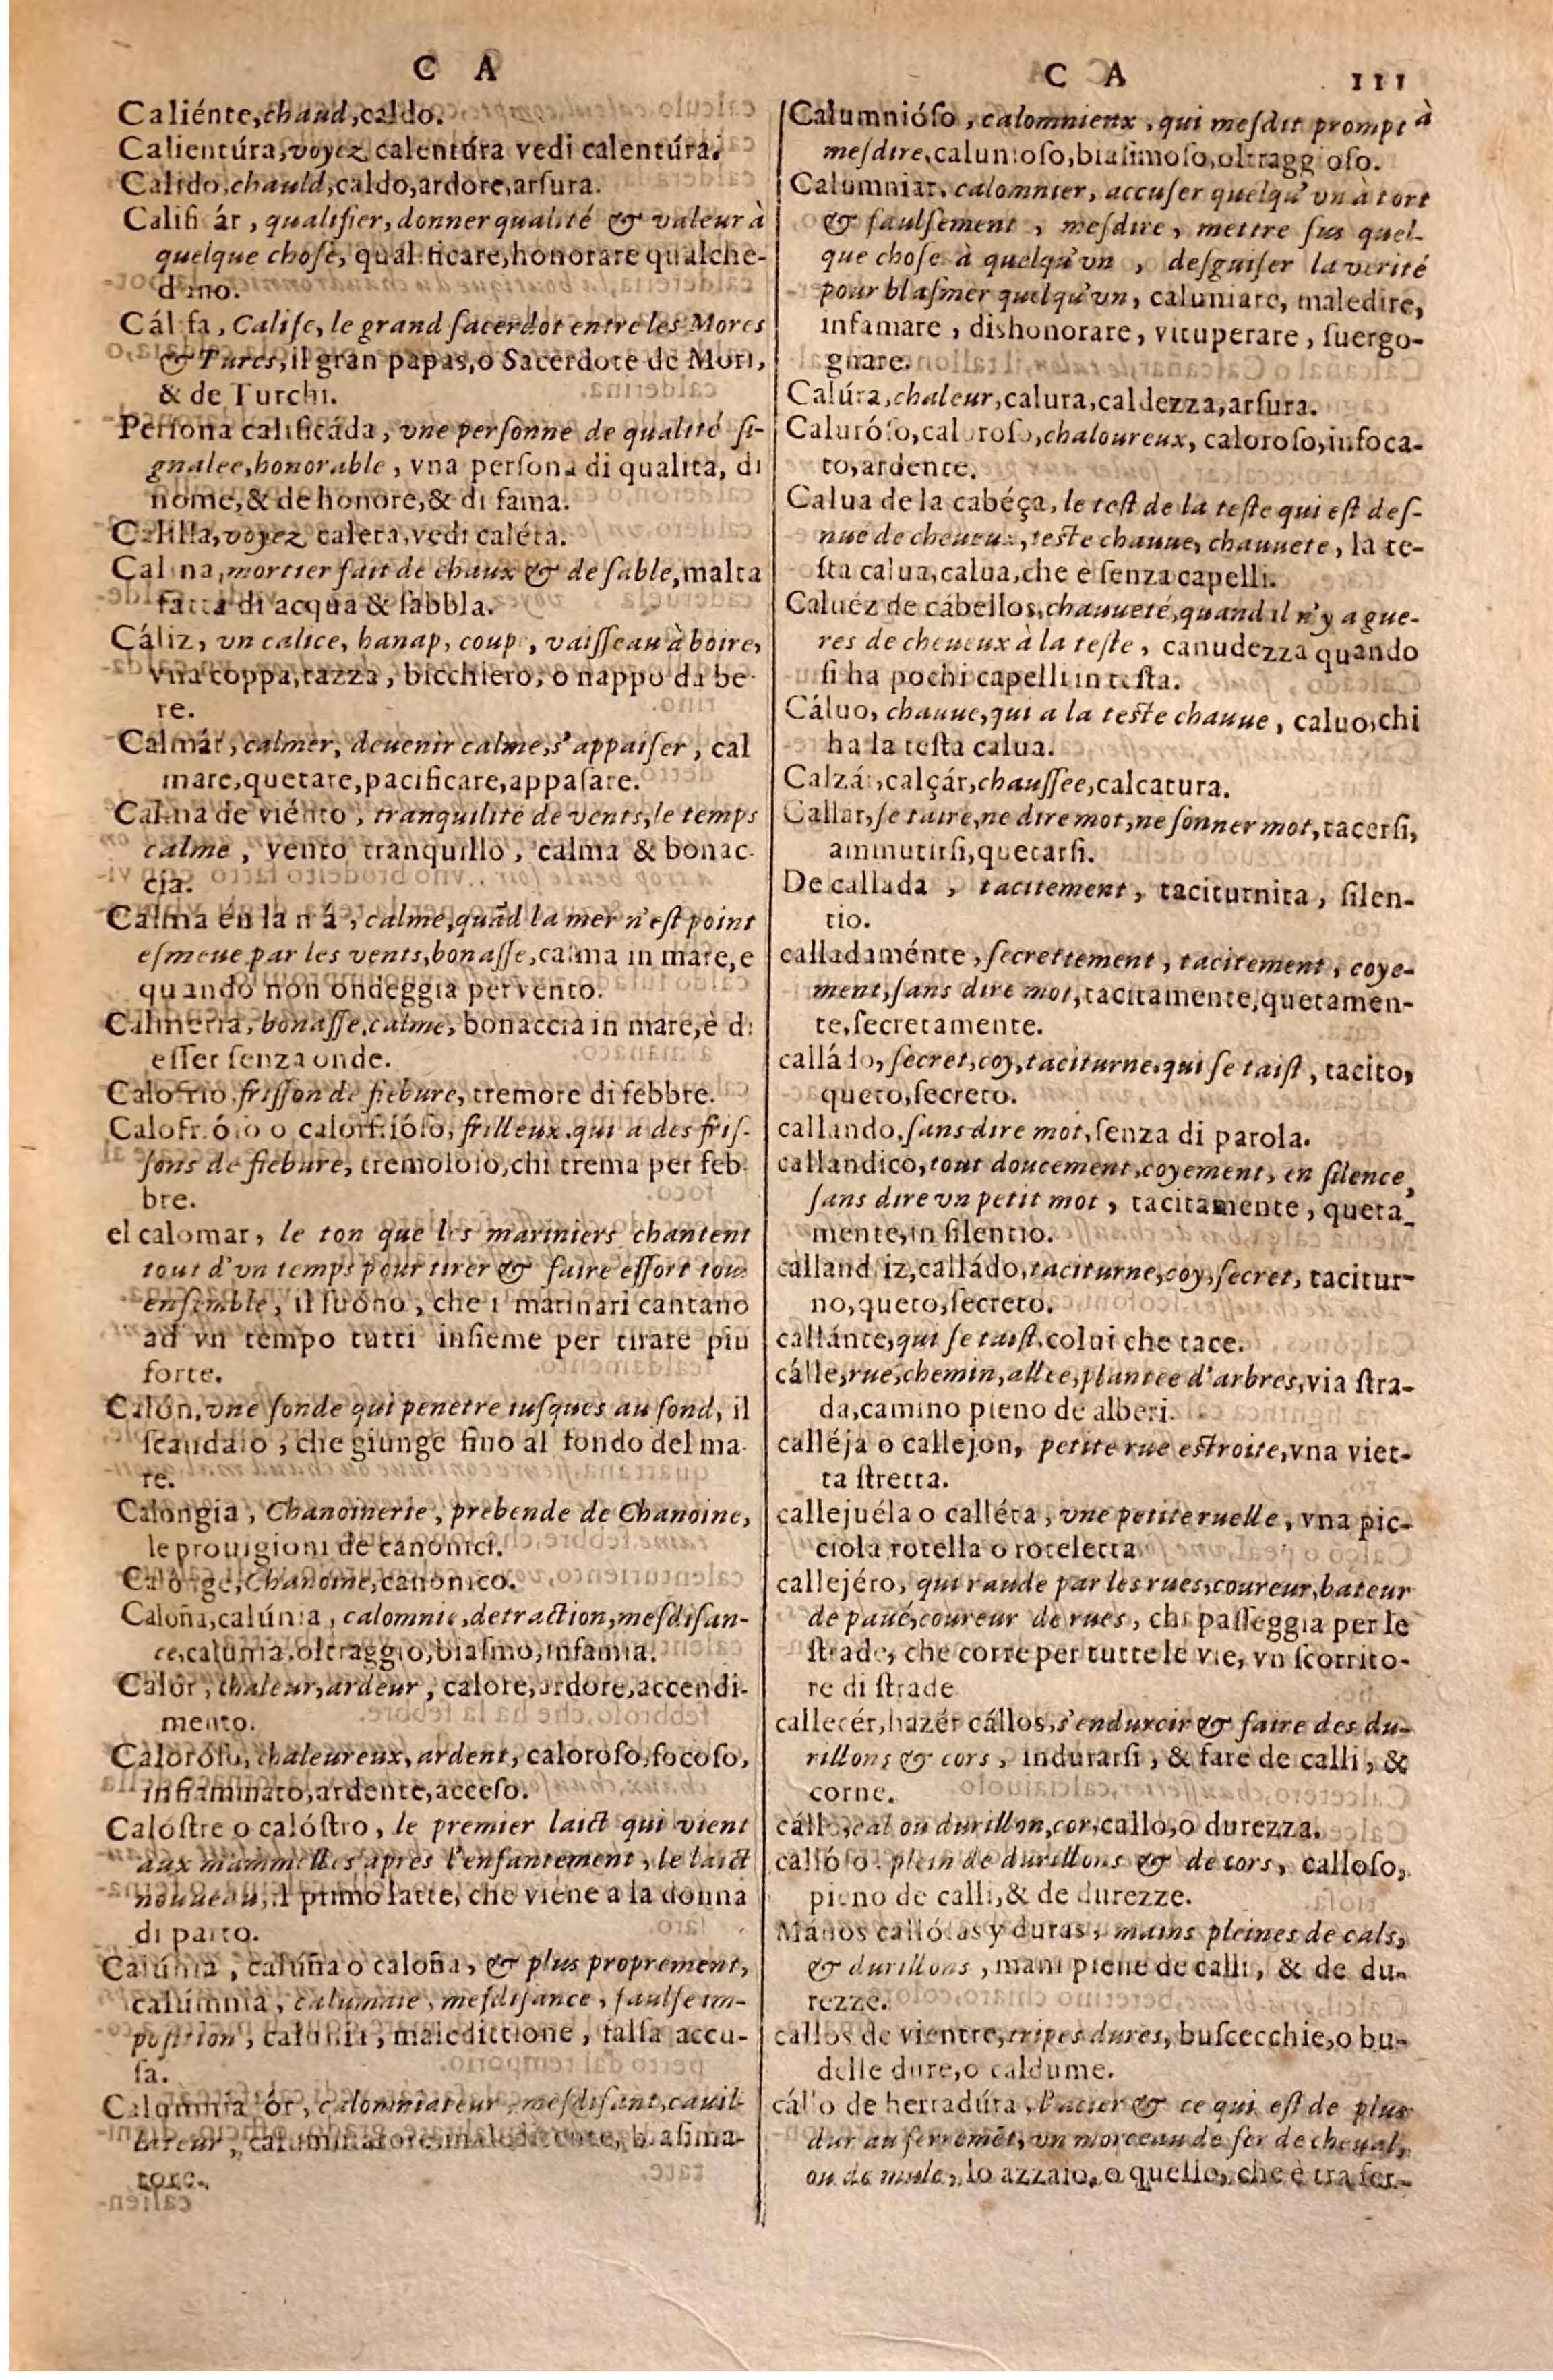 C A
Caliénte, chaud, caldo.
Calientúra, voyez calentúra vedi calentúra.
Calido, chauld, caldo, ardore, arſura.
Calificár, qualifier, donner qualité & valeur à
quelque choſe, qualificare, honorare qualche-
dnno.
Cálifa, Calife, le grand ſacerdot entre les Mores
& Turcs, il gran papas, o Sacerdote de Mori,
& de Turchi.
Perſona calificáda, vne perſonne de qualité ſi-
gnalee, honorable, vna perſona di qualita, di
nome, & de honore, & di fama.
Calilla, voyez caleta, vedi caléta.
Calina, mortier fait de chaux & de ſable, malta
fatta di acqua & ſabbla.
Cáliz, vn calice, hanap, coupe, vaiſſeau à boire,
vna coppa, tazza, bicchiero, o nappo da be-
re.
Calmár, calmer, deuenir calme, s'appaiſer, cal
mare, quetare, pacificare, appaſare.
Calma de viénto, tranquilite de vents, le temps
calme, vento tranquillo, calma & bonac-
cia.
Calma én la má, calme, quãd la mer n'eſt point
eſmeue par les vents, bonaſſe, calma in mare, e
quando non ondeggia per vento.
Calmeria, bonaſſe, calme, bonaccia in mare, è di
eſſer ſenza onde.
Calofrio friſſon de fiebure, tremore di febbre.
Calofrióſo o calorfrióſo, frilleux, qui a des friſ-
ſons de fiebure, tremoloſo, chi trema per feb
bre.
el calomar, le ton que les mariniers chantent
tout d'vn temps pour tirer & faire effort tou
enſemble, il ſuóno, che i marinari cantano
ad vn tempo tutti inſieme per tirare piu
forte.
Calón, vne ſonde qui penetre iuſques au fond, il
ſcandaio, che giunge fino al fondo del ma-
re.
Calongia, Chanoinerie, prebende de Chanoine,
le prouigioni de canonici.
Calonge, Chanoine, canonico.
Caloña, calúnia, calomnie, detraction, meſdiſan-
ce, calunia, oltraggio, biaſmo, infamia.
Calór, chaleur, ardeur, calore, ardore, accendi-
mento.
Caloróſo, chaleureux, ardent, caloroſo, focoſo,
infiaminato, ardente, acceſo.
Calóſtre o calóſtro, le premier laict qui vient
aux mammelles apres l'enfantement, le laict
nouueau, il primo latte, che viene a la donna
di parto.
Calúnia, calúña o caloña, & plus proprement,
calúmnia, calumnie, meſdiſance, faulſe im-
poſition, calunia, maledittione, falſa accu-
ſa.
Calumniadór, calomniateur, meſdiſant, cauil-
lateur, caluminatore, maledicente, biaſima-
tore.
calien-
C A 111
Calumnióſo, calomnieux, qui meſdit prompt à
meſdire, calunioſo, biaſimoſo, oltraggioſo.
Calumniar, calomnier, accuſer quelqu'vn à tort
& faulſement, meſdire, mettre ſus quel-
que choſe à quelqu'vn, deſguiſer la verité
pour blaſmer quelqu'vn, caluniare, maledire,
infamare, dishonorare, vituperare, ſuergo-
gnare.
Calúra, chaleur, calura, caldezza, arſura.
Caluróſo, caloroſo, chaloureux, caloroſo, infoca-
to, ardente.
Calua de la cabéça, le teſt de la teſte qui eſt deſ-
nue de cheueux, teſte chauue, chauuete, la te-
ſta calua, calua, che e ſenza capelli.
Caluéz de cábellos, chauueté, quand il n'y a gue-
res de cheueux à la teſte, canudezza quando
ſi ha pochi capelli in teſta.
Cáluo, chauue, qui a la teſte chauue, caluo, chi
ha la teſta calua.
Calzár, calçár, chauſſee, calcatura.
Callar, ſe taire, ne dire mot, ne ſonner mot, tacerſi,
ammutirſi, quetarſi.
De callada, tacitement, taciturnita, ſilen-
tio.
calladaménte, ſecrettement, tacitement, coye-
ment, ſans dire mot, tacitamente, quetamen-
te, ſecretamente.
calládo, ſecret, coy, taciturne, qui ſe taiſt, tacito,
queto, ſecreto.
callando, ſans dire mot, ſenza di parola.
callandico, tout doucement, coyement, en ſilence,
ſans dire vn petit mot, tacitamente, queta-
mente, in ſilentio.
callandriz, calládo, taciturne, coy, ſecret, tacitur-
no, queto, ſecreto.
callánte, qui ſe taiſt, colui che tace.
cálle, rue, chemin, allee, plantee d'arbres, via ſtra-
da, camino pieno de alberi.
calléja o callejon, petite rue eſtroite, vna viet-
ta ſtretta.
callejuéla o calléta, vne petite ruelle, vna pic-
ciola rotella o roteletta
callejéro, qui raude par les rues, coureur, bateur
de paué, coureur de rues, chi paſſeggia per le
ſtrade, che corre per tutte le vie, vn ſcorrito-
re di ſtrade
callecér, hazér cállos, s'endurcir & faire des du-
rillons & cors, indurarſi, & fare de calli, &
corne.
cállo, cal ou durillon, cor, callo, o durezza.
callóſo, plein de durillons & de cors, calloſo,
pieno de calli, & de durezze.
Mános callóſas y duras, mains pleines de cals,
& durillons, mani piene de calli, & de du-
rezze.
callos de vientre, tripes dures, buſcecchie, o bu-
delle dure, o caldume.
cállo de herradúra, l'acier & ce qui eſt de plus
dur au ferremẽt, vn morceau de fer de cheual,
ou de mule, lo azzaio, o quello, che è tra fer-